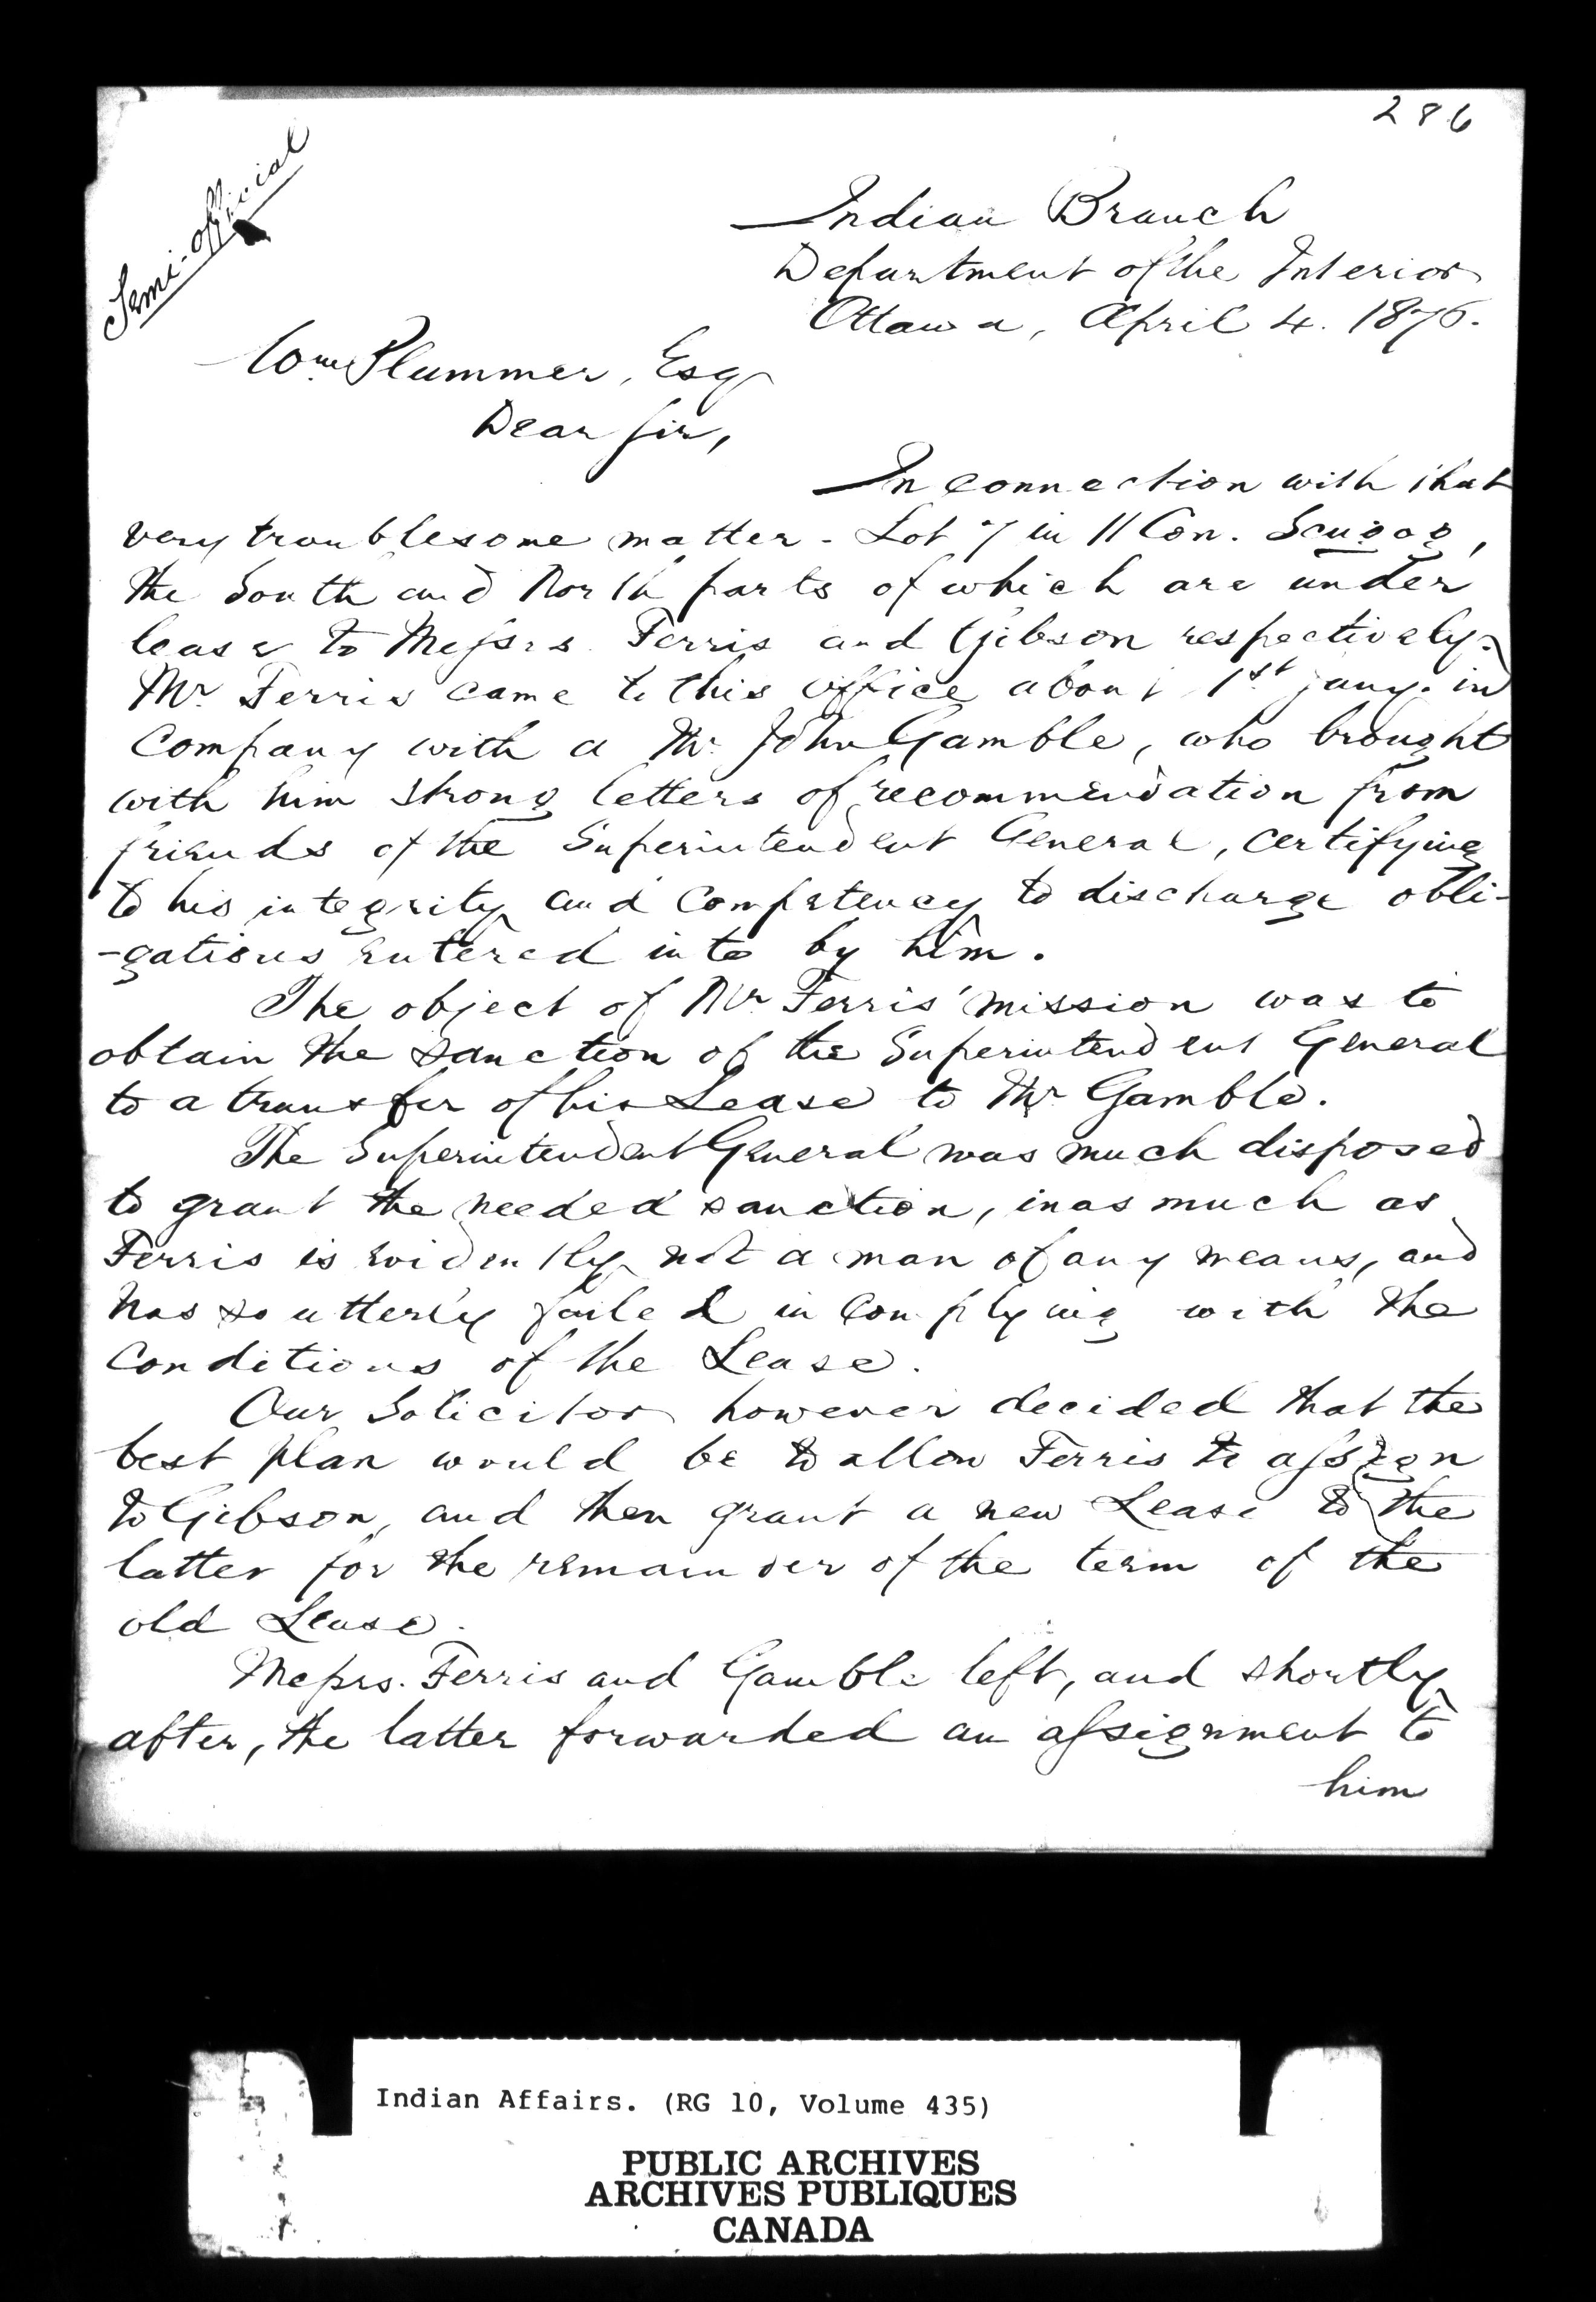 286
Semi-official
Indian Branch
Department of the Interior
Ottawa, April 4. 1876.
Wm Plummer, Esq
Dear Sir,
In connection with that
very troublesome matter - Lot 7 in 11 Con. Scugog,
the South and North parts of which are under
lease to Messrs. Ferris and Gibson respectively.
Mr. Ferris came to this office about 1st Jany. in
Company with a Mr. John Gamble, who brought
with him strong letters of recommendation from
friends of the Superintendent General, certifying
to his integrity and Competency to discharge obli-
-gations entered into by him.
The object of Mr Ferris' mission was to
obtain the sanction of the Superintendent General
to a transfer of his Lease to Mr. Gamble.
The Superintendent General was much disposed
to grant the needed sanction, inasmuch as
Ferris is evidently not a man of any means, and
has so utterly failed in Complying with the
Conditions of the Lease.
Our Solicitor however decided that the
best plan would be to allow Ferris to assign
to Gibson, and then grant a new Lease to the
latter for the remainder of the term of the
old Lease.
Messrs. Ferris and Gamble left, and shortly
after, the latter forwarded an assignment to
him
Indian Affairs. (RG 10, Volume 435)
PUBLIC ARCHIVES
ARCHIVES PUBLIQUES
CANADA